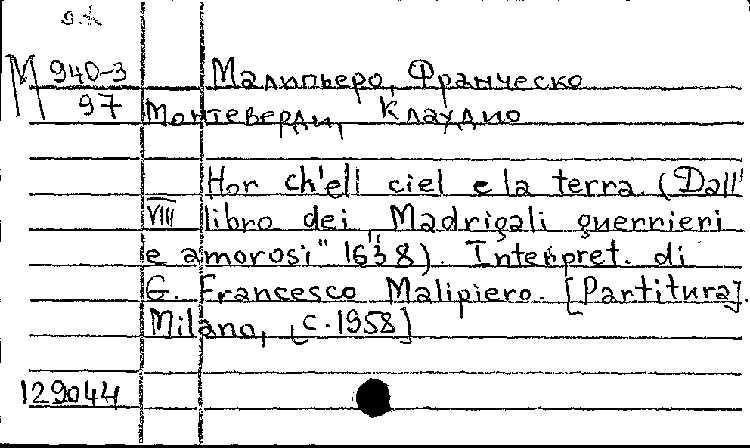 М 940-3 Малипьеро, Франческо
97 Монтеверди, Клаудио
Hor ch'ell ciel e la terra. (Dall'
VIII libro dei "Madrigali guerrieri
e amorosi" 1638). Interpret. di
G. Francesco Malipiero. [Partitura].
Milano, [c.1958]
129044